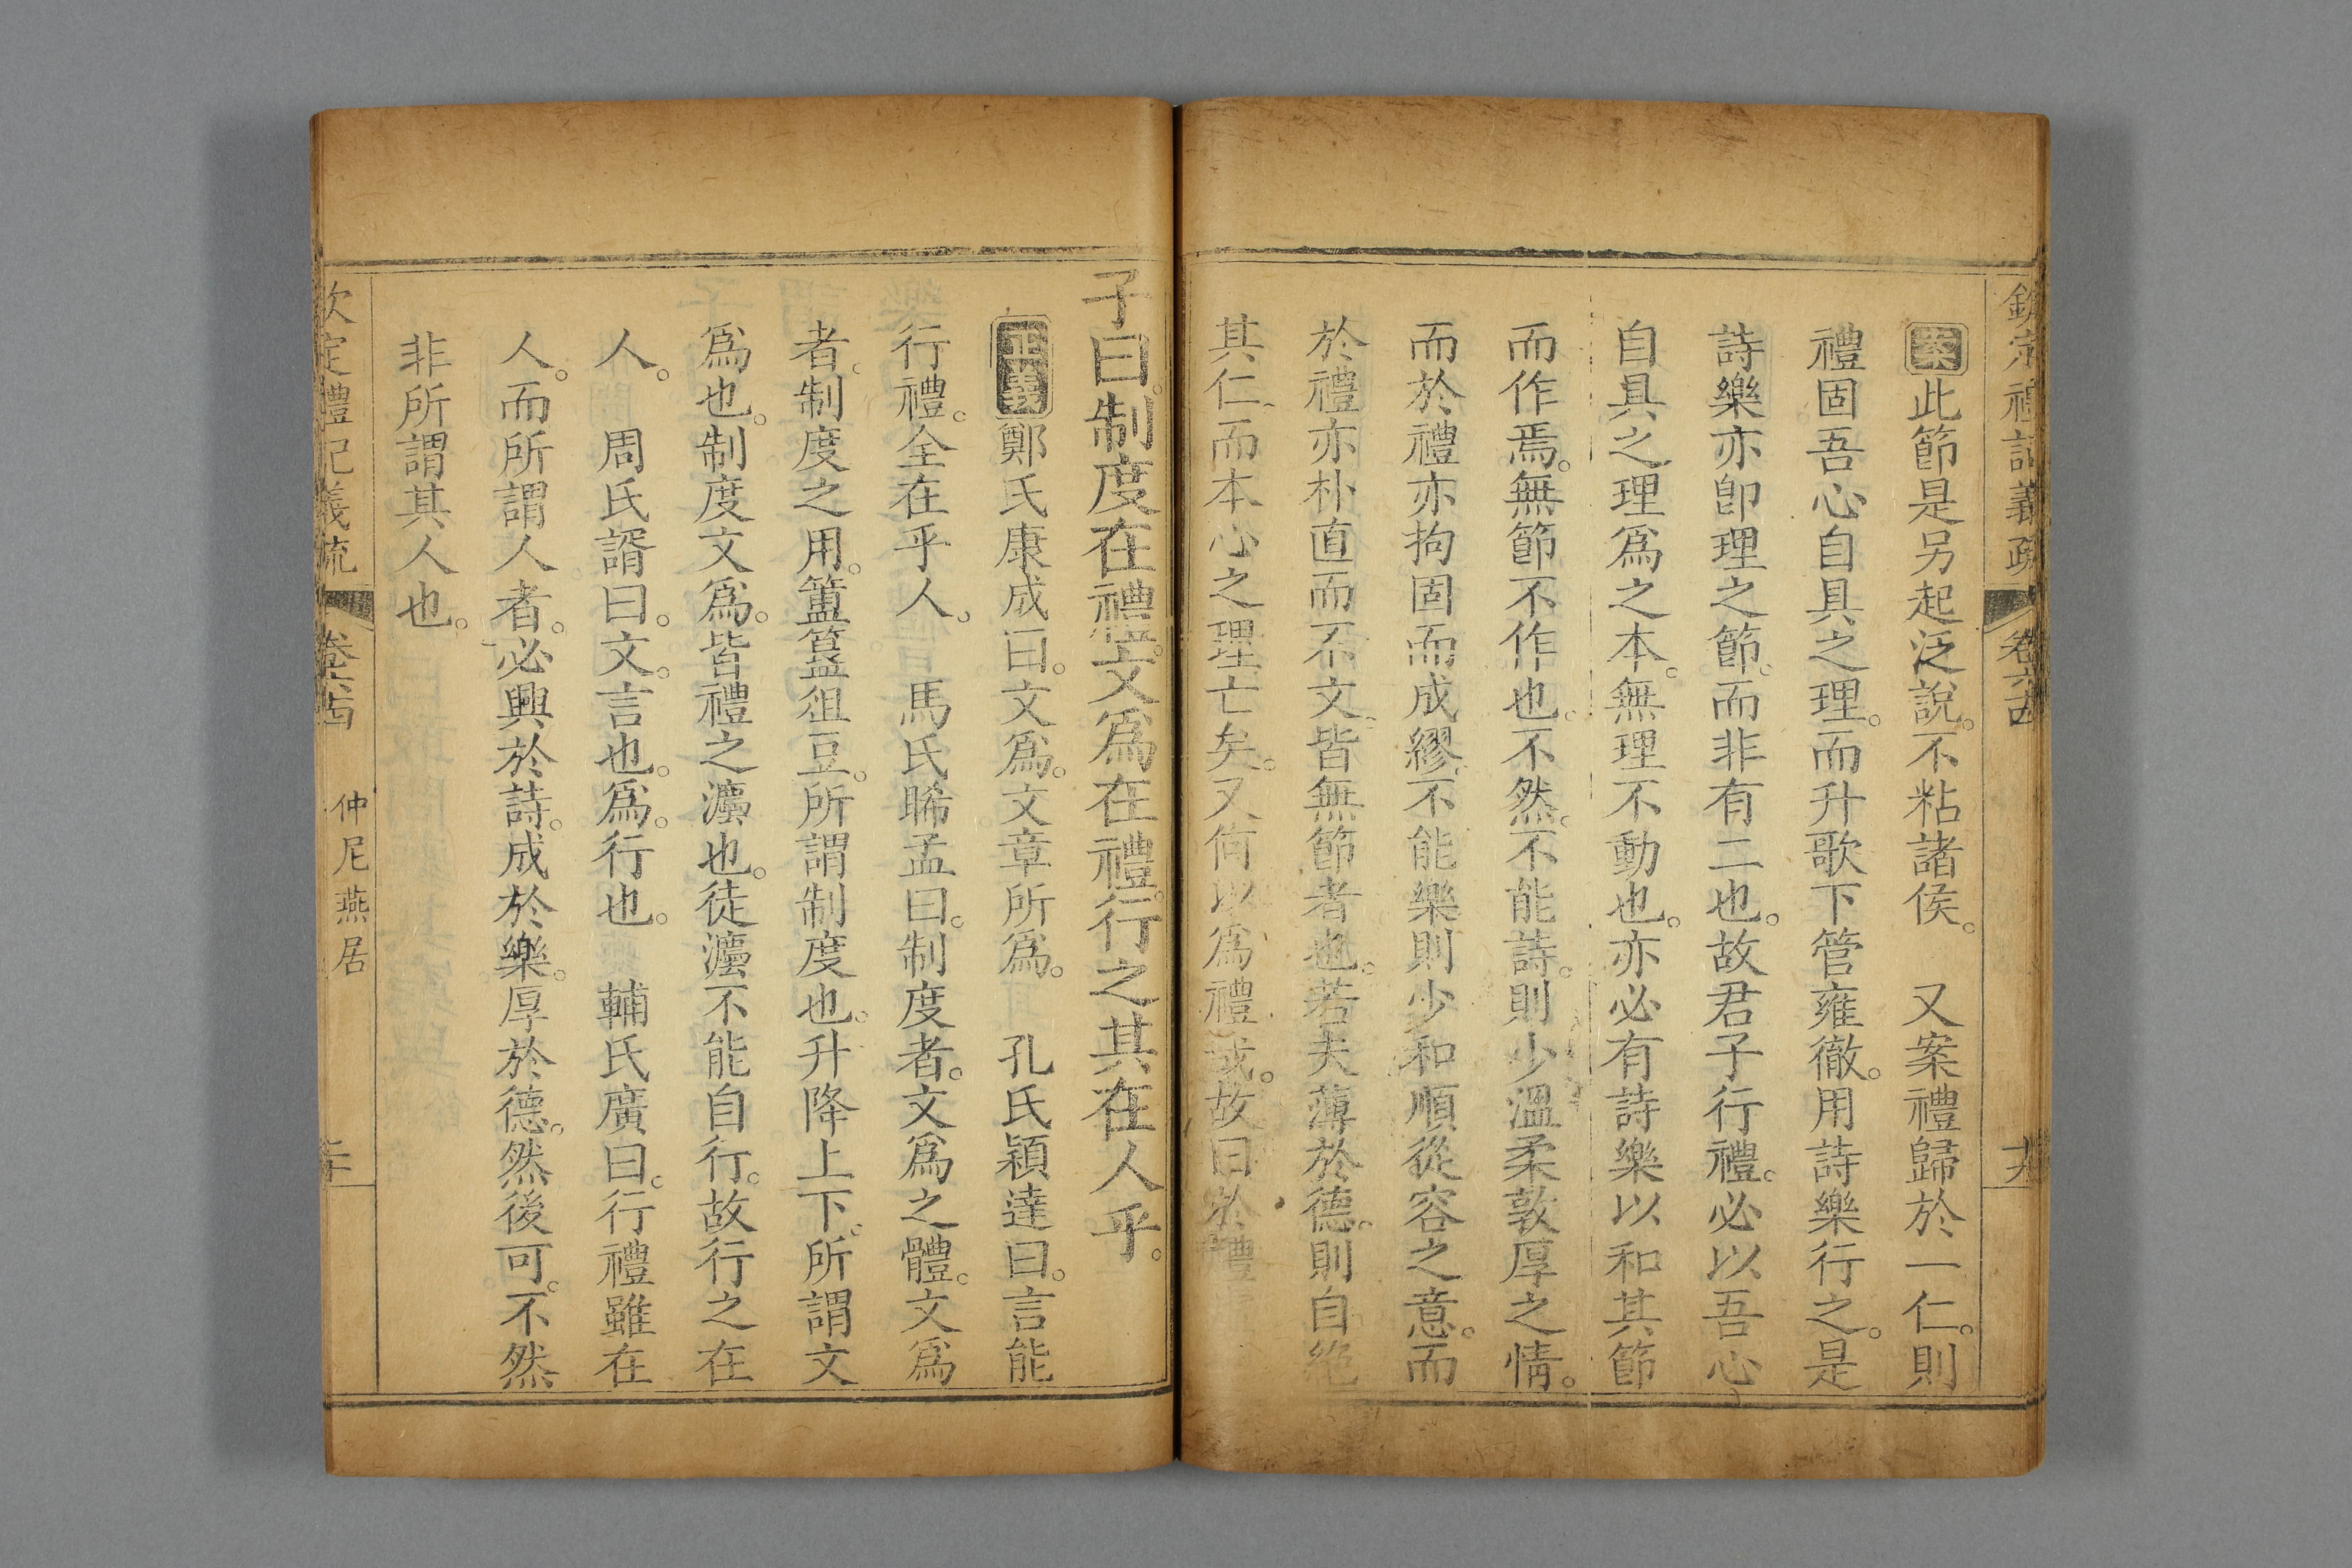 欽定禮記義疏　卷六十四　十九
案此節是另起泛說。不粘諸侯。　又案禮歸於一仁。則
禮固吾心自具之理。而升歌下管雍徹。用詩樂行之。是
詩樂亦卽理之節。而非有二也。故君子行禮。必以吾心
自具之理爲之本。無理不動也。亦必有詩樂以和其節
而作焉。無節不作也。不然。不能詩。則少溫柔敦厚之情。
而於禮亦拘固而成繆。不能樂則少和順從容之意。而
於禮亦朴直而不文。皆無節者也。若夫薄於德。則自絶
其仁。而本心之理亡矣。又何以爲禮或。故曰於禮
子曰。制度在禮。文爲在禮。行之其在人乎。
正義鄭氏康成曰。文爲。文章所爲。　孔氏穎達曰。言能
行禮。全在乎人。　馬氏晞孟曰。制度者。文爲之體。文爲
者。制度之用。簠簋俎豆。所謂制度也。升降上下。所謂文
爲也。制度文爲。皆禮之灋也。徒灋不能自行。故行之在
人。　周氏諝曰。文。言也。爲。行也。　輔氏廣曰。行禮雖在
人。而所謂人者。必興於詩。成於樂。厚於德。然後可。不然
非所謂其人也。
欽定禮記義疏　卷六十四　仲尼燕居　二十